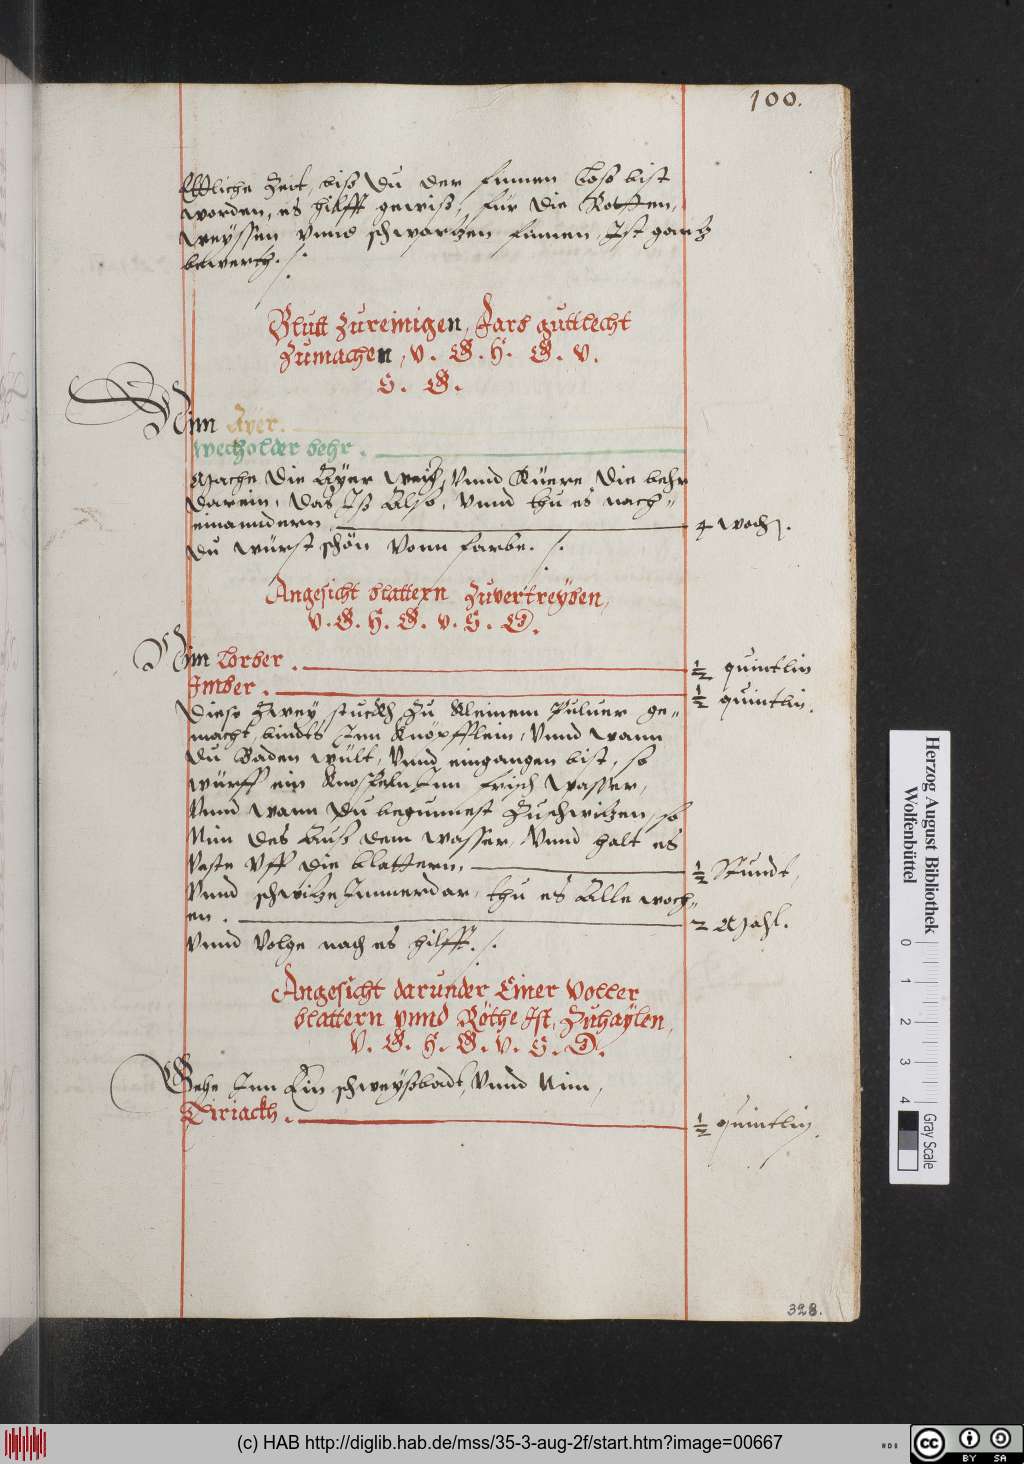 100.
Ettliche Zeit, biß du der finnen Loß bist
worden, es hilfft gewiß, für die Rotten,
weyssen vnnd schwartzen finnen, Ist gantz
bewerth. ./.
Blutt Zureinigen, Farb guttlecht
Zumachen, v. G. H. G. v.
S. G.
Nim Ayer.
Wecholder behr.
Mache die Ayer weich, Vnnd Rüere die behr
darein, das Iß Also, Vnnd thu es nach=
einanndern 4 woch.
du würst schön Vonn farbe. ./.
Angesicht blattern Zuvertreyben,
v. G. H. G. v. S. D.
Nim Lorber. ½ quintlin
Imber. ½ quintlin.
Diese Zwey stuckh Zu kleinem Puluer ge=
macht, bindts Inn Knöpfflein, Vnnd wann
du Baden wült, Vnnd eingangen bist, so
würff ein Inn frisch wasser,
Vnnd wann du begunnest Zuschwitzen, so
Nim des Auß dem wasser, Vnnd halt es
Vaste Vff die blattern, ½ Stundt,
Vnnd schwitze Immerdar, thu es Alle woch=
en. 2 Mahl.
Vnnd Volge nach es hilfft. ./.
Angesicht darunder Einer Voller
blattern vnnd Röthe Ist, Zuhaylen,
V. G. H. G. v. S. D.
Gehe Inn Ein schweyßbadt, Vnnd Nim,
Tiriackh. ½ quintlin.
328.
Herzog August Bibliothek
Wolfenbüttel
0 1 2 3 4
Gray Scale
(c) HAB http://diglib.hab.de/mss/35-3-aug-2f/start.htm?image=00667
cc BY SA